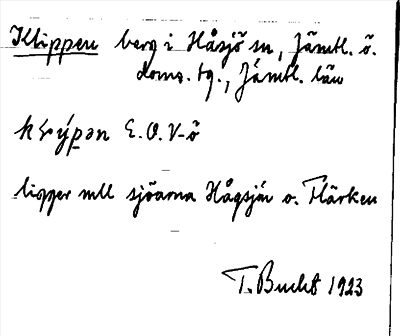 Klippen berg i Håsjö sn, Jämtl. ö.
doms. tg., Jämtl. län
E. O. V-ö
ligger mll sjöarna Hågsjön o. Flärken
T. Bucht 1923